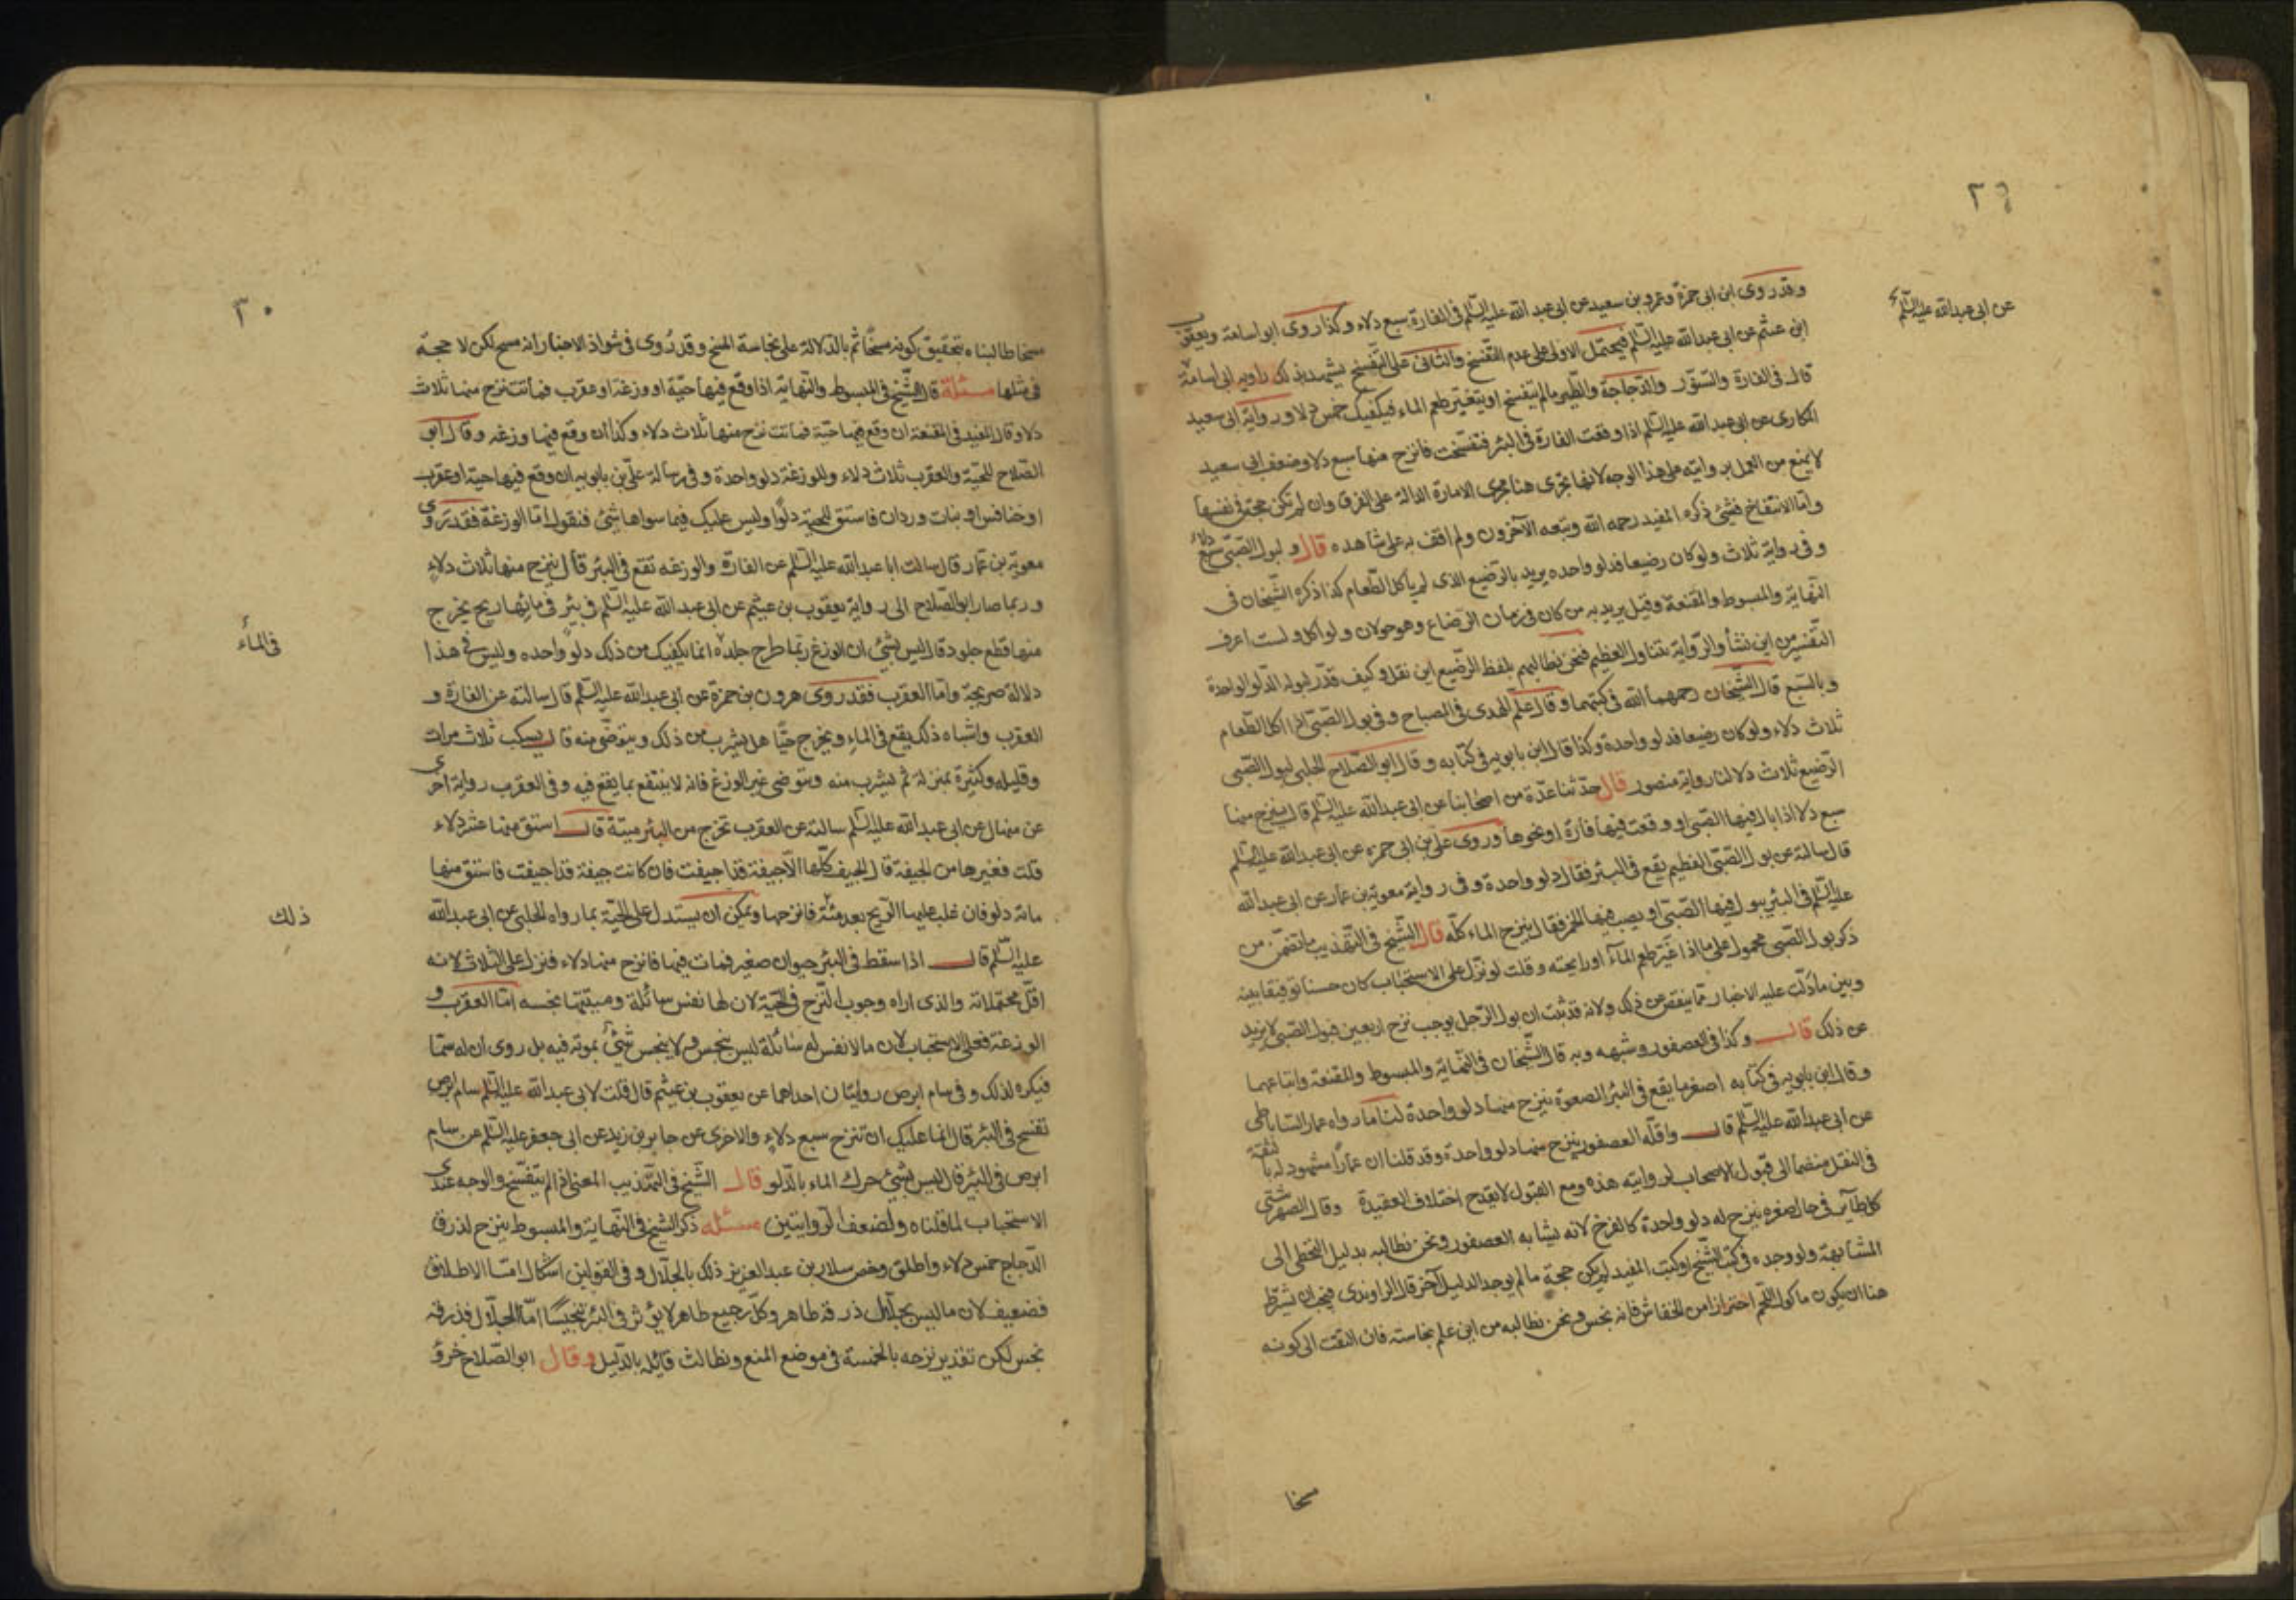 ٢٩
عن ابى عبدالله عليه السّلم
وقد روى ابن ابى حمزة وعمرو بن سعيد عن ابى عبد الله عليه السّلم فى الفارة سبع دلاء وكذا روى ابو اسامة ويعقوب
ابن عثيم عن ابى عبدالله عليه السّلم فيحتمل الاولى على عدم التفسّخ والثانى على التفسّخ يشهد بذلك رواية ابى اسامة
قال فى الفارة والسنّور والدّجاجة والطّير مالم يتفسخ او يتغير طعم الماء فيكفيك خمس دلاء ورواية ابى سعيد
المكارى عن ابى عبدالله عليه السلم اذا وقعت الفارة فى البئر فتفسّخت فانزح منها سبع دلاء وضعف ابى سعيد
لا يمنع من العمل بروايته على هذا الوجه لانها تجرى هنا مجرى الامارة الدالة على الفرق وان لم تكن حجة فى نفسها
وامّا الانتفاخ فشئ ذكره المفيد رحمه الله وتبعه الآخرون ولم اقف به على شاهد قال ولبول الصّبى سبع دلاء
وفى رواية ثلاث ولو كان رضيعا فدلو واحده يريد بالرّضيع الذى لم ياكل الطّعام كذا ذكره الشّيخان فى
النّهاية والمبسوط والمقنعة وقيل يريد به من كان فى زمان الرّضاع وهو حولان ولو اكل ولست اعرف
التّفسير من اين نشأ والرّواية تتناول العظيم فنحن نطالبهم بلفظ الرّضيع اين نقل وكيف قدّر لبوله الدّلو الواحدة
وبالسّبع قال الشّيخان رحمهما الله فى كتبهما وقال علم الهدى فى المصباح وفى بول الصّبىّ اذا اكل الطّعام
ثلاث دلاء ولو كان رضيعا فدلو واحدة وكذا قال ابن بابويه فى كتابه وقال ابو الصّلاح الحلبى لبول الصّبى
الرّضيع ثلاث دلاء لنا رواية منصور قال حدّثنا عدّة من اصحابنا عن ابى عبدالله عليه السّلم قال ينزح منها
سبع دلاء اذا بال فيها الصّبى او وقعت فيها فأرة او نحوها وروى على بن ابى حمزه عن ابى عبدالله عليه السّلم
قال سالته عن بول الصّبىّ الفطيم يقع فى البئر فقال دلو واحدة وفى رواية معوية بن عمار عن ابى عبدالله
عليه السّلم فى البئر يبول فيها الصّبىّ او يصب فيها الخمر فقال ينزح الماء كلّه قال الشّيخ فى التّهذيب ما تضمّن من
ذكر بول الصّبى محمول على ما اذا غيّر طعم المآء او رايحته وقلت لو نزّل على الاستحباب كان حسنا توفيقا بينه
وبين ما دلّت عليه الاخبار مما ينقص عن ذلك ولانه قد ثبت ان بول الرّجل يوجب نزح اربعين فبول الصّبى لا يزيد
عن ذلك قال وكذا فى العصفور وشبهه وبه قال الشّيخان فى النّهاية والمبسوط والمقنعة واتباعهما
وقال ابن بابويه فى كتابه اصغر ما يقع فى البئر الصعوة ينزح منها دلو واحدة لنا ما رواه عمار السّاباطى
عن ابى عبدالله عليه السّلم قال واقلّه العصفور ينزح منها دلو واحدة وقد قلنا ان عمّارا مشهود له بالثقة
فى النقل منضما الى قبول الاصحاب لروايته هذه ومع القبول لا يقدح اختلاف العقيدة وقال الصهرشتى
كل طآئر فى حال صغره ينزح له دلو واحدة كالفرخ لانه يشابه العصفور ونحن نطالبه بدليل التخطى الى
المشابهة ولو وجده فى كتب الشّيخ او كتب المفيد لم يكن حجة مالم يوجد الدليل آخر قال الراوندى فيجب ان يشترط
هنا ان يكون ماكول اللّحم احترازا من الخفاش فانه نجس ونحن نطالبه من اين علم نجاسته فان التفت الى كونه
مسخا
٣٠
مسخا طالبناه بتحقيق كونه مسخا ثم بالدّلالة على نجاسة المسخ وقد رُوى فى شواذ الاخبار انه مسخ لكن لا حجة
فى مثلها مسئلة قال الشّيخ فى المبسوط والنّهاية اذا وقع فيها حيّة او وزغة او عقرب فماتت نزح منها ثلاث
دلاء وقال المفيد فى المقنعة ان وقع فيها حيّة فماتت نزح منها ثلاث دلاء وكذا ان وقع فيها وزغه وقال ابو
الصّلاح للحيّة والعقرب ثلاث دلاء وللوزغة دلو واحدة وفى رسالة علىّ بن بابويه ان وقع فيها حيّة او عقرب
او خنافس او بنات وردان فاستق للحيّة دلوًا وليس عليك فيما سواها شئ فنقول امّا الوزغة فقد روى
معوية بن عمّار قال سالت ابا عبدالله عليه السّلم عن الفارة والوزغه تقع فى البئر قال ينزح منها ثلاث دلاء
وربما صار ابو الصّلاح الى رواية يعقوب بن عيثم عن ابى عبدالله عليه السّلم فى بئر فى مائها ريح يخرج
منها قطع جلود قال ليس بشئ ان الوزغ ربّما طرح جلده انما يكفيك من ذلك دلو واحده وليس فى هذا
دلالة صريحة وامّا العقرب فقد روى هرون بن حمزة عن ابى عبدالله عليه السّلم قال سالته عن الفارة و
العقرب واشباه ذلك يقع فى الماء ويخرج حيّا هل يشرب من ذلك ويتوضّى منه قال يسكب ثلاث مرات
وقليله وكثيرة بمنزلة ثم يشرب منه ويتوضى غير الوزغ فانه لا ينتفع بما يقع فيه وفى العقرب رواية اخرى
عن منهال عن ابى عبدالله عليه السّلم سالته عن العقرب تخرج من البئر ميتة قال استق منها عشر دلاء
قلت فغيرها من الجيفة قال الجيف كلّها الّا جيفة قد اجيفت فان كانت جيفة قد اجيفت فاستق منها
مائة دلو فان غلب عليها الرّيح بعد مئة فانزحها ويمكن ان يستدل على الحيّة بما رواه الحلبى عن ابى عبدالله
عليه السّلم قال اذا سقط فى البئر حيوان صغير فمات فيها فانزح منها دلاء فنزل على الثلاث لانه
اقلّ محتملاته والذى اراه وجوب النّزح فى الحيّة لان لها نفس سائلة وميتتها نجسه امّا العقرب و
الوزغة فعلى الاستحباب لان ما لا نفس له سائلة ليس بنجس ولا ينجس شئ بموته فيه بل روى ان له سمّا
فيكره لذلك وفى سام ابرص روايتان احداهما عن يعقوب بن عيثم قال قلت لابى عبدالله عليه السّلم سام ابرص
تفسخ فى البئر قال انما عليك ان تنزح سبع دلاء والاخرى عن جابر بن زيد عن ابى جعفر عليه السّلم عن سام
ابرص فى البئر قال ليس بشئ حرك الماء بالدّلو قال الشّيخ فى التهذيب المعنى اذا لم يتفسّخ والوجه عندى
الاستحباب لما قلناه ولضعف الرّوايتين مسئله ذكر الشيخ فى النّهاية والمبسوط ينزح لذرق
الدّجاج خمس دلاء واطلق وخص سلار بن عبد العزيز ذلك بالجلّال وفى القولين اشكال امّا الاطلاق
فضعيف لان ما ليس بجلّال ذرقه طاهر وكلّ رجيع طاهر لا يؤثر فى البئر تنجيسًا امّا الجلّال فذرقه
نجس لكن تقدير نزحه بالخمسة فى موضع المنع ونطالب قائله بالدّليل وقال ابو الصّلاح خرؤ
فى الماء
ذلك